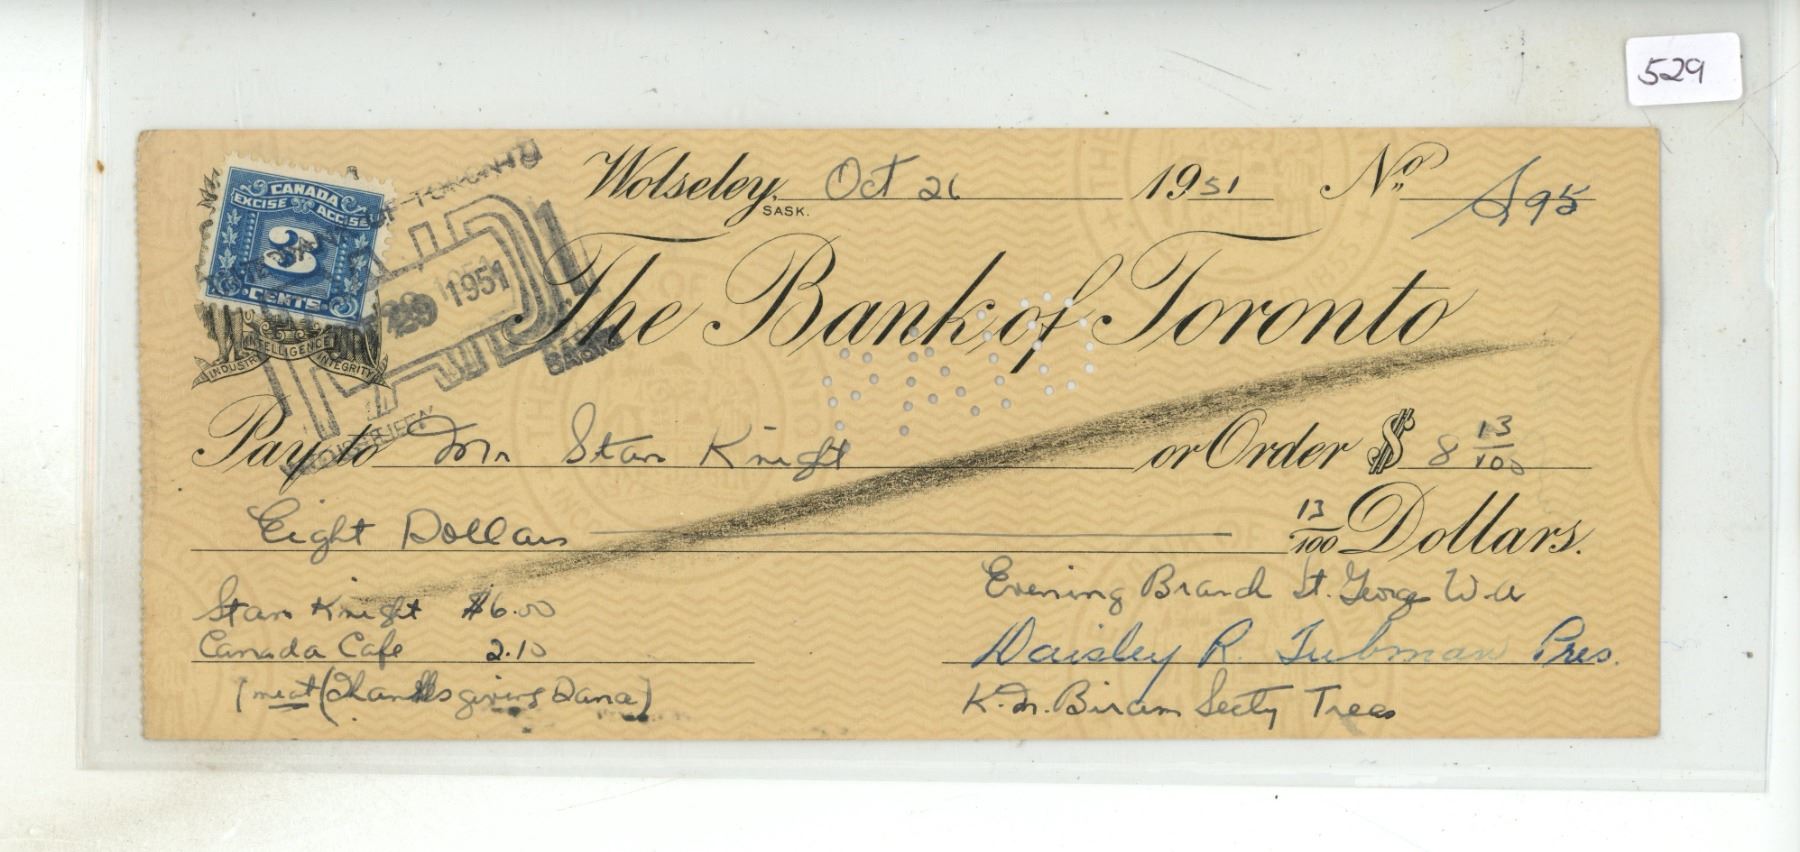 529
Wolseley, SASK. Oct 26 1951 No. 
CANADA
EXCISE ACCISE
3
CENTS
BANK OF TORONTO
29 1951
The Bank of Toronto
INDUSTRY INTELLIGENCE INTEGRITY
Pay to Mr Stan Knight or Order $ 8 13/100
Eight Dollars 13/100 Dollars.
Stan Knight $6.00
Canada Cafe 2.10
(meat (Thanksgiving Dance)
Evening Branch St. George W.A
Daisley R. Tubman Pres.
K. M. Biram Secty Treas